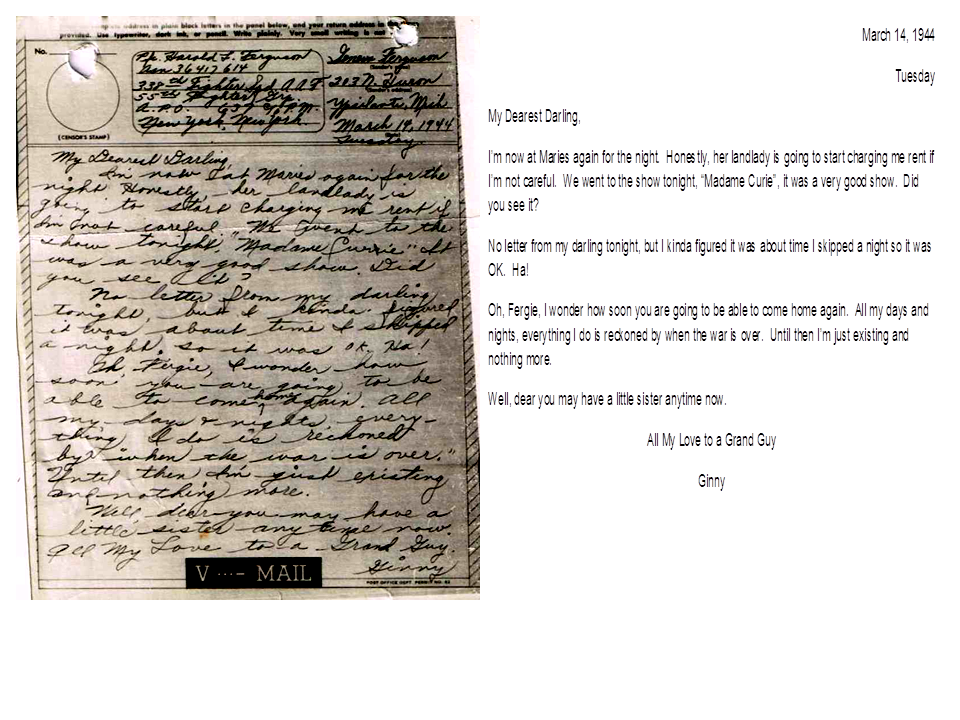 address in plain block letters in the panel below, and your return address in
provided. Use typewriter, dark ink, or pencil. Write plainly. Very small writing is not
No.
(CENSOR'S STAMP)
Harold L. Ferguson
36417614
338th Fighter Sqd. A.A.F.
55th Fighter Grp.
A.P.O. 637 P.M.
New York, New York
Ferguson
(Sender's name)
203 N. Huron
(Sender's address)
Ypsilanti, Mich
March 14, 1944
Tuesday
My Dearest Darling,
I'm now at Maries again for the
night. Honestly, her landlady is
going to start charging me rent if
I'm not careful. We went to the
show tonight, "Madame Currie" It
was a very good show. Did
you see it?
No letter from my darling
tonight, but I kinda figured
it was about time I skipped
a night, so it was OK. Ha!
Oh, Fergie, I wonder how
soon you are going to be
able to come home again. All
my days & nights, every-
thing I do is reckoned
by "when the war is over."
Until then I'm just existing
and nothing more.
Well dear you may have a
little sister any time now.
All My Love to a Grand Guy.
Ginny
V ···– MAIL
POST OFFICE DEPT. PERMIT NO.
March 14, 1944
Tuesday
My Dearest Darling,
I'm now at Maries again for the night. Honestly, her landlady is going to start charging me rent if
I'm not careful. We went to the show tonight, “Madame Curie”, it was a very good show. Did
you see it?
No letter from my darling tonight, but I kinda figured it was about time I skipped a night so it was
OK. Ha!
Oh, Fergie, I wonder how soon you are going to be able to come home again. All my days and
nights, everything I do is reckoned by when the war is over. Until then I'm just existing and
nothing more.
Well, dear you may have a little sister anytime now.
All My Love to a Grand Guy
Ginny